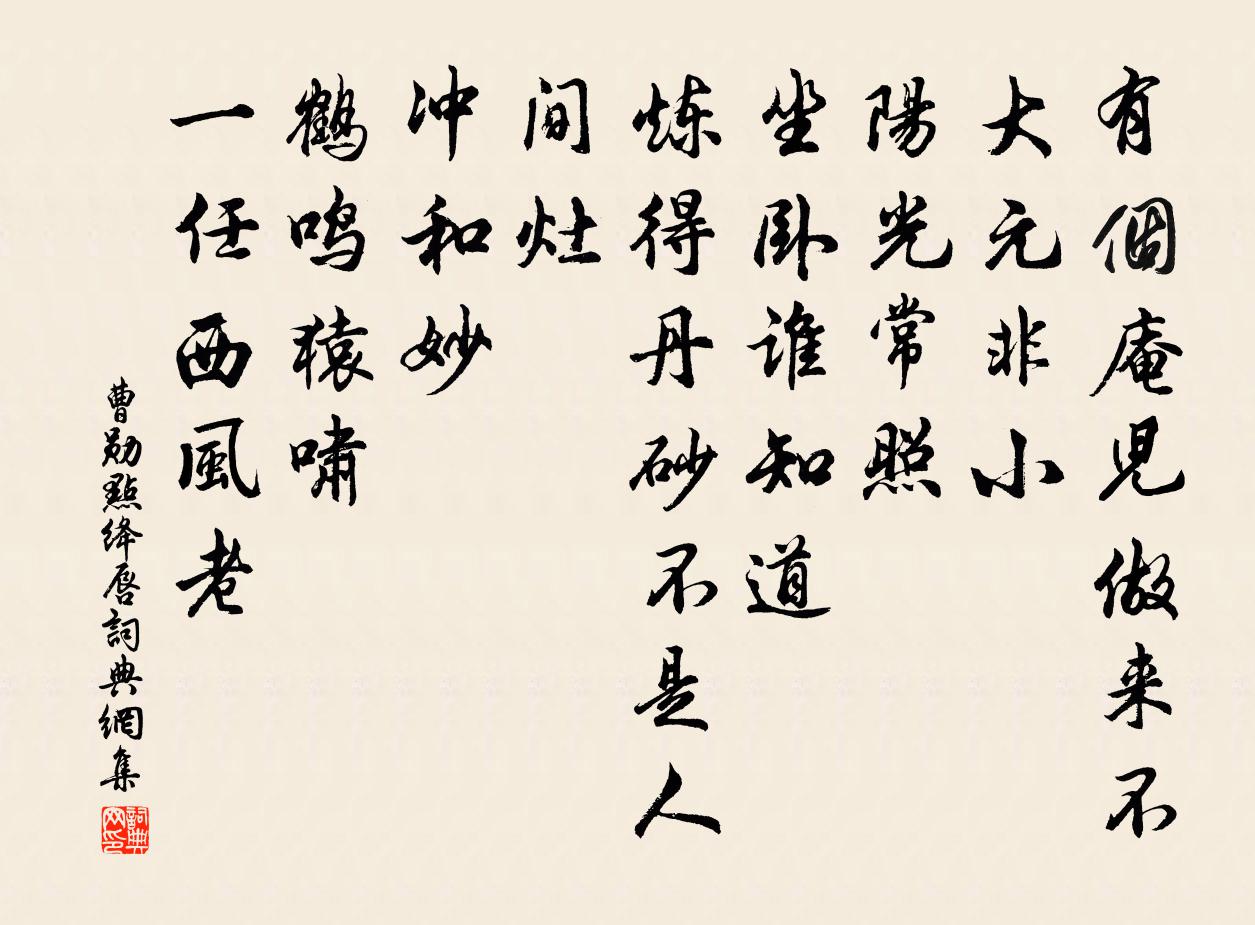 有個庵兒做来不
大元非小
陽光常照
坐卧誰知道
炼得丹砂不是人
间灶
冲和妙
鹤鸣猿啸
一任西風老
曹勋點绛唇詞典網集
詞典网印